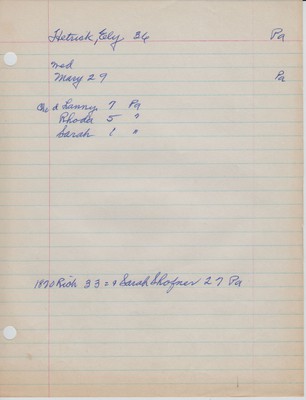 Hetrick, Ely 36 Pa
md
Mary 29 Pa
Ch d Fanny 7 Pa
Rhoda 5 "
Sarah 1 "
1870 Rich 33 = & Sarah Shofner 27 Pa